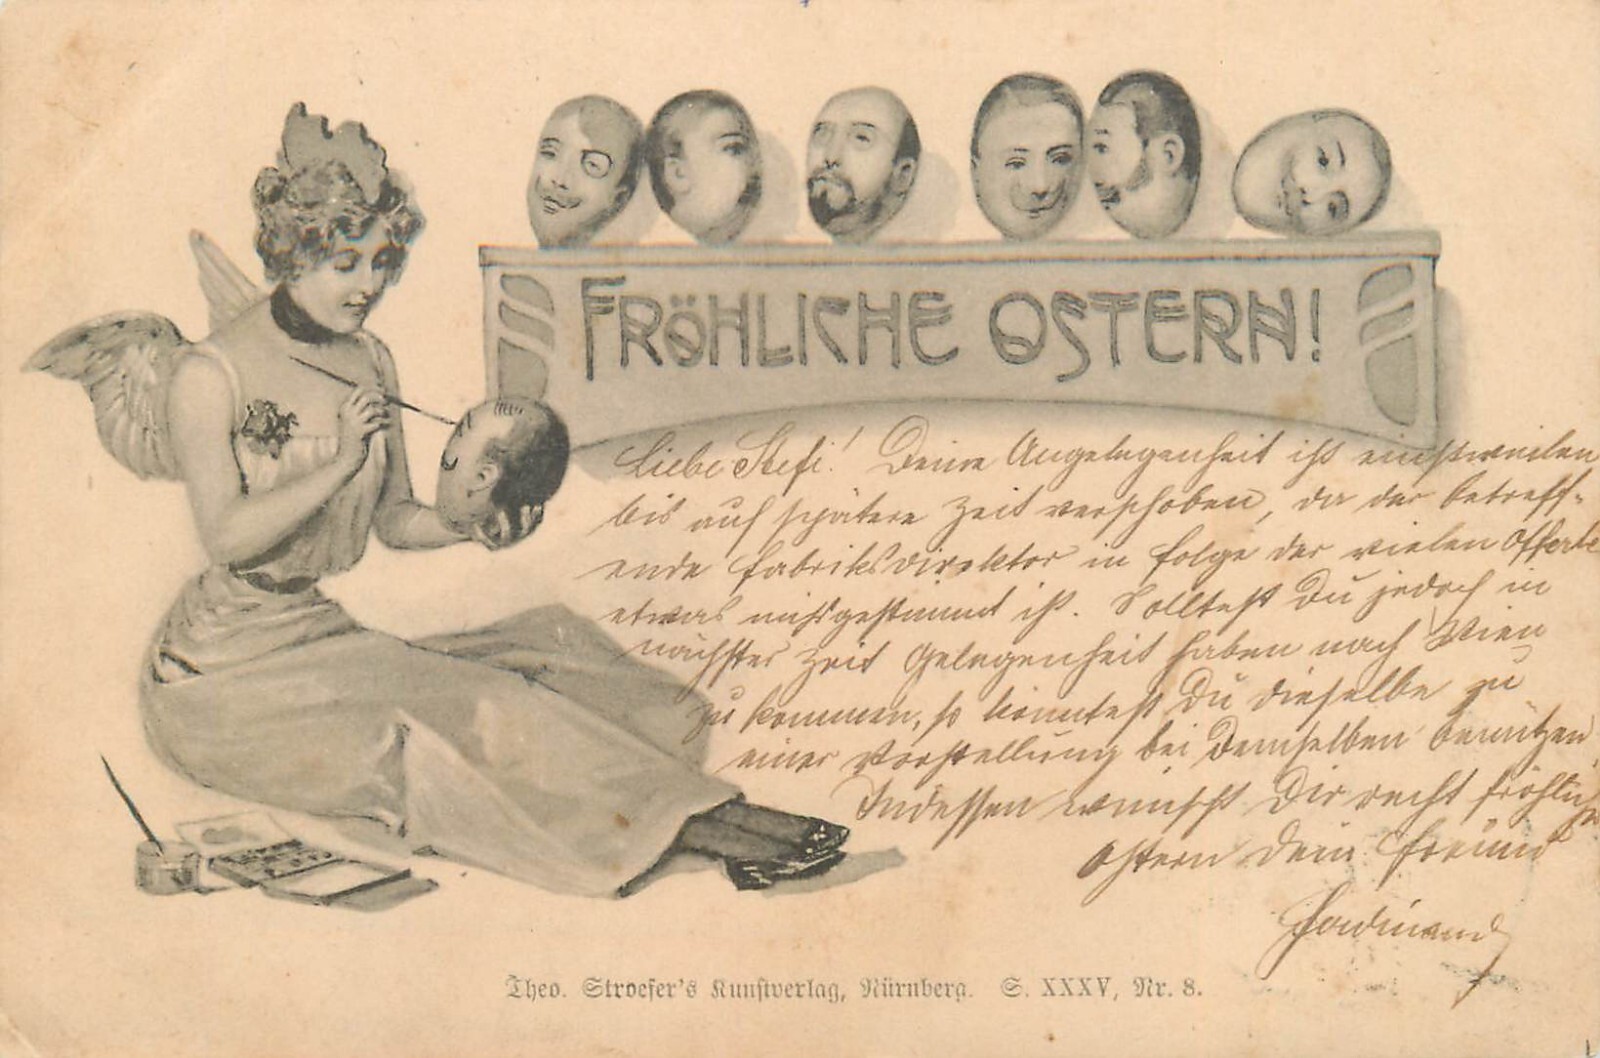 FRÖHLICHE OSTERN!
Liebe Stefi! Deine Angelegenheit ist einstweilen
bis auf spätere Zeit verschoben, da der betreff-
ende Fabriksdirektor in folge der vielen Offerte
etwas mißgestimmt ist. Solltest Du jedoch in
nächster Zeit Gelegenheit haben nach Wien
zu kommen, so könntest Du dieselbe zu
einer Vorstellung bei Demselben benützen
Indessen wünscht Dir recht fröhliche
Ostern Dein Freund
Ferdinand
Theo. Stroefer's Kunstverlag, Nürnberg. S. XXXV, Nr. 8.